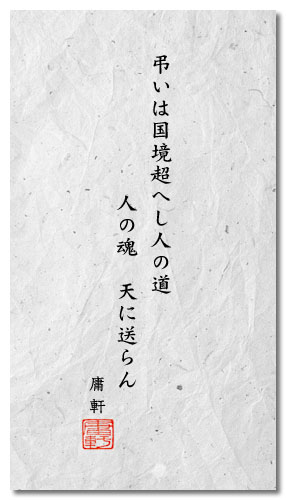 弔いは国境超へし人の道
人の魂　天に送らん
庸軒